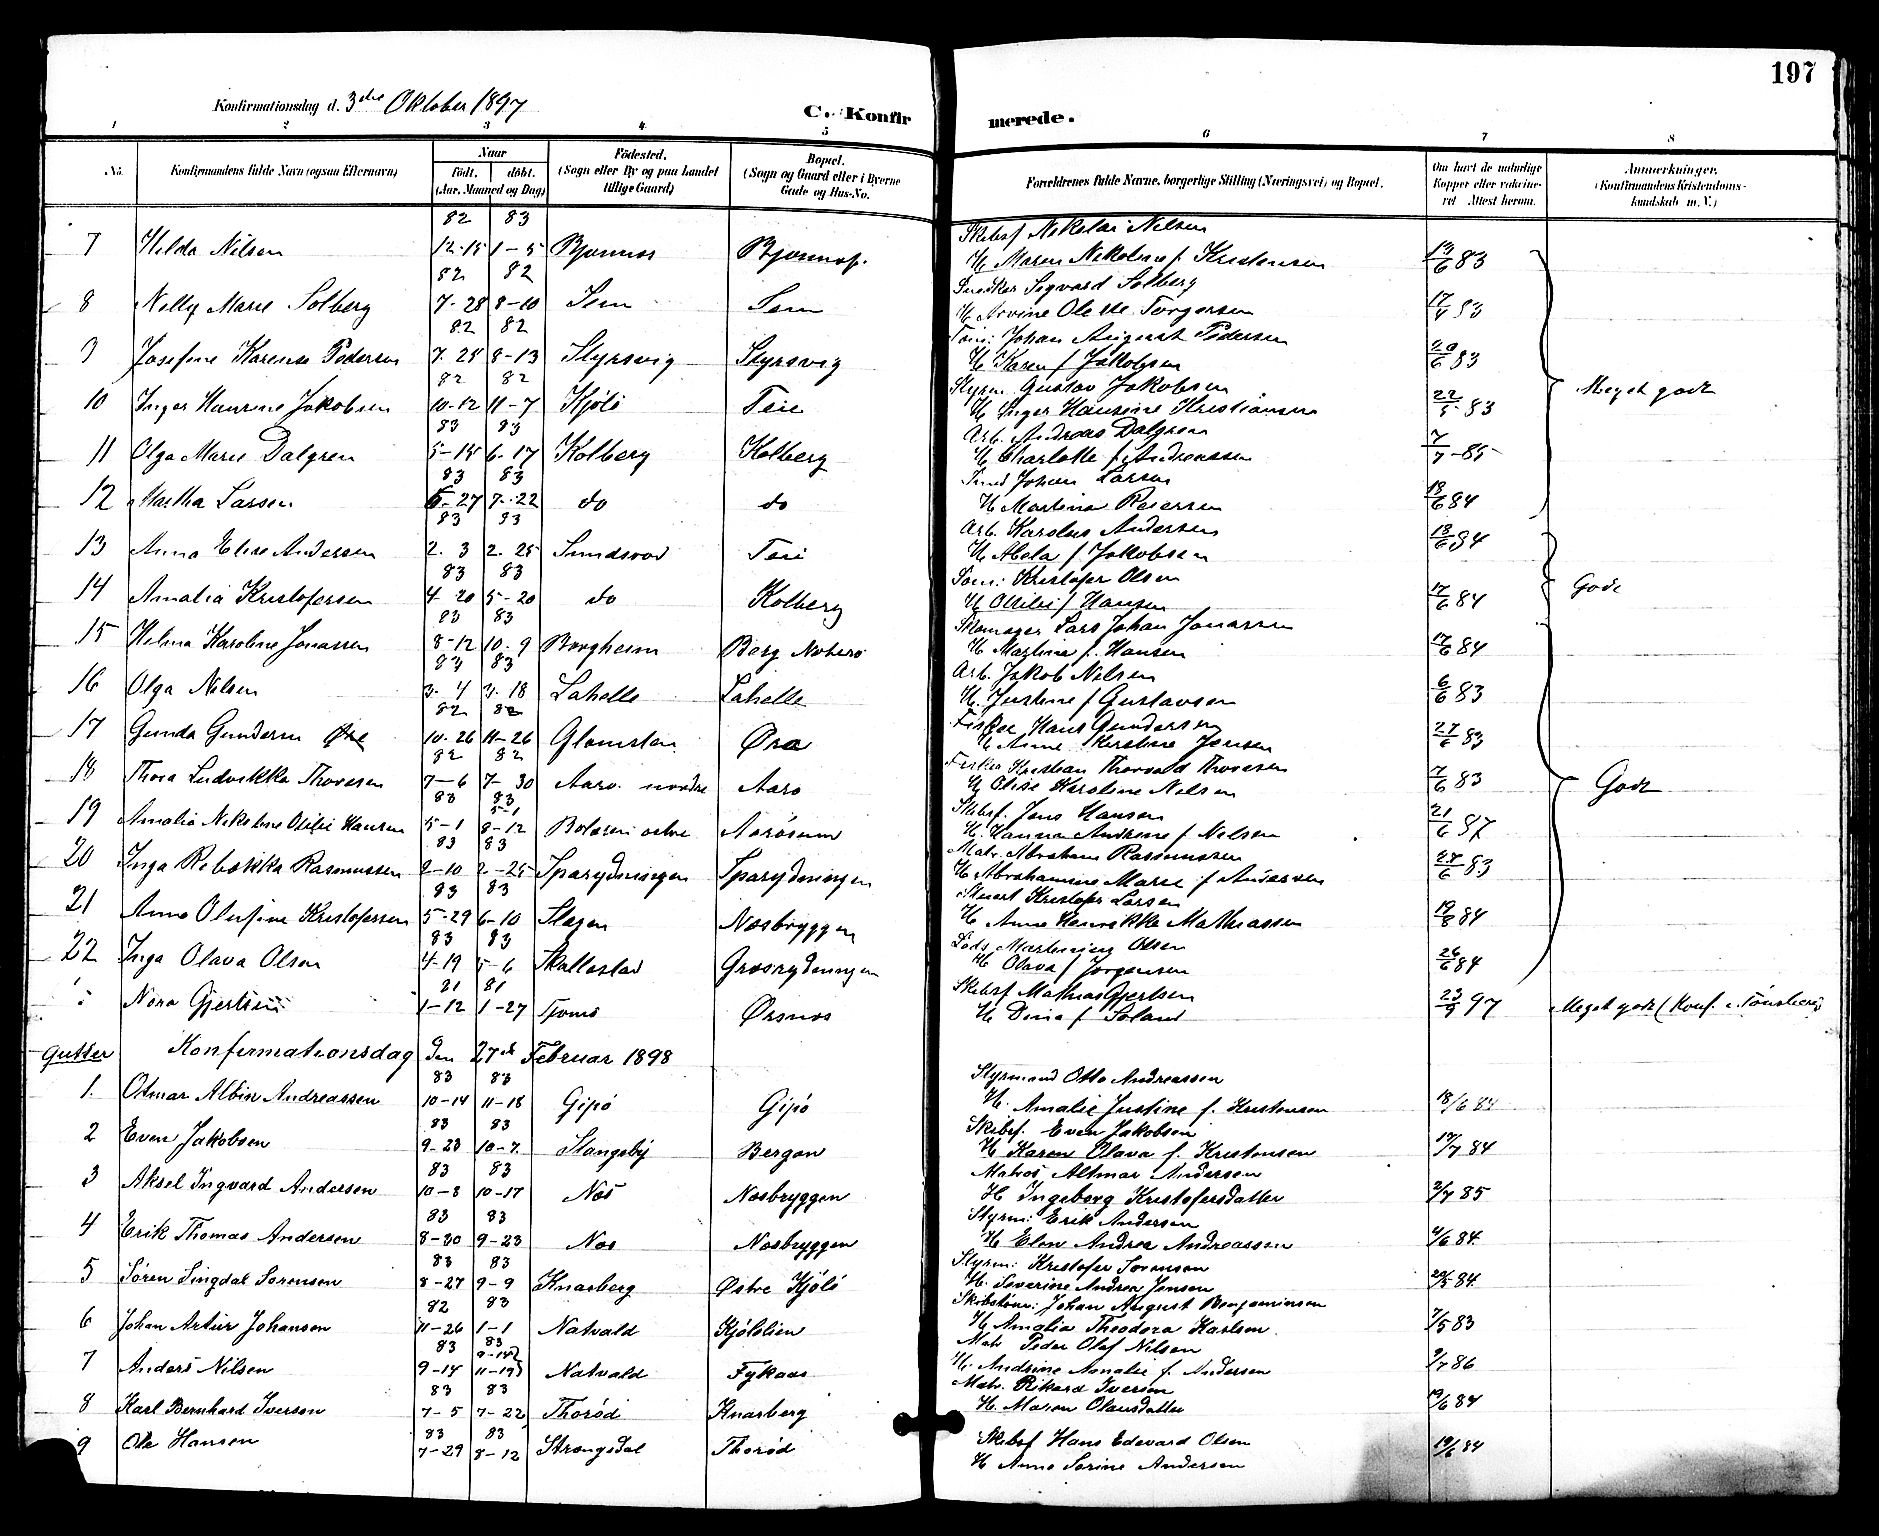 197
Konfirmationsdag d. 3die Oktober 1897
C. Konfirmerede.
1 2 3 4 5 6 7 8
No. Konfirmandens fulde Navn (ogsaa Efternavn) Naar Födt. döbt. (Aar, Maaned og Dag) Födested. (Sogn eller By og paa Landet tillige Gaard) Bopæl. (Sogn og Gaard eller i Byerne Gade og Hus-No. Forældrenes fulde Navne, borgerlige Stilling (Næringsvei) og Bopæl. Om havt de naturlige Kopper eller vakcineret Attest herom. Anmærkninger. (Konfirmandens Kristendomskundskab m. V.)
82 83 Skibsf Nikolai Nilsen
7 Hilda Nilsen 12-15 1-5 Bjønnes Bjønnes. H Maren Nikoline f Kristensen 13/6 83
82 82 Snedker Sigvard Solberg
8 Nelly Marie Solberg 7-28 8-10 Sem Sem H Lovine Olette Torgersen 17/7 83
82 82 Töm: Johan August Pedersen
9 Josefine Karense Pedersen 7-25 8-13 Styrsvig Styrsvig H Karen f Jakobsen 20/6 83
82 82 Styrm. Gustav Jakobsen
10 Inger Haurine Jakobsen 10-12 11-7 Kjölö Teie H Inger Hansine Kristiansen 22/5 83 Meget godt
83 83 Arb. Andreas Dalgren
11 Olga Marie Dalgren 5-15 6-17 Kolberg Kolberg H Charlotte f Andreassen 7/7-85
83 83 Smed Johan Larsen
12 Martha Larsen 5-27 7-22 do do H Martina Reiersen 18/6 84
83 83 Arb. Karolus Andersen
13 Anna Elise Andersen 2-3 2-25 Smidsrød Teie H Abela f Jakobsen 18/6 84
83 83 Töm: Kristofer Olsen
14 Amalia Kristofersen 4-20 5-20 do Kolberg H Ottilie f Hansen 17/6 84 Godt
83 83 Skomager Lars Johan Jonassen
15 Helma Karoline Jonassen 8-12 10-9 Borgheim Berg Nøtterø H Martine f. Hansen 17/6 84
83 83 Arb. Jakob Nilsen
16 Olga Nilsen 3-4 3-18 Lahelle Lahelle H. Justine f Gustavsen 6/6 83
82 82 Fisker Hans Gundersen
17 Gunda Gundersen Øre 10-26 11-26 Glomsten Øra H Anne Kirstine Jensen 27/6 83
82 82 Fisker Kristian Thorvald Thoresen
18 Thora Ludvikka Thoresen 7-6 7-30 Aarø nordre Aarø H Elise Karoline Nilsen 7/6 83 Godt
83 83 5-1 Skibsf. Jens Hansen
19 Amalia Nikoline Otilie Hansen 5-1 8-12 Bolæren østre Aarøsund H. Hanna Andrine f Nilsen 21/6 87
83 83 Matr. Abraham Rasmussen
20 Inga Rebekka Rasmussen 2-10 2-25 Sparydningen Sparydningen H Abrahamine Marie f Andersen 27/6 83
83 83 Kristofer Larsen
21 Anne Olufine Kristofersen 5-29 6-10 Slagen Næsbryggen H Anne Henrikke Mathiassen 19/8 84
83 83 Lods Martinius Olsen
22 Inga Olava Olsen 4-19 5-6 Skallestad Græsrydningen H Olava f Jørgensen 26/6 84
81 81 Skibsf Mathias Gjertsen
Nora Gjertsen 1-12 1-27 Tjømø Ørsnes H Dina f Soland 23/9 97 Meget godt (Konf. i Tønsberg)
Gutter Konfirmationsdag Den 27de Februar 1898
83 83 Styrmand Otto Andreassen
1. Otmar Albin Andreassen 10-14 11-18 Gipö Gipö H. Amalie Justine f. Kristensen 18/6 84
83 83 Skibsf. Even Jakobsen
2 Even Jakobsen 9-23 10-7 Stangeby Bergan H Karen Olava f. Kristensen 17/7 84
83 83 Matros Altmar Andersen
3 Aksel Ingvard Andersen 10-8 10-17 Næs Næsbryggen H Ingeborg Kristofersdatter 2/7 85
83 83 Styrm: Erik Andersen
4 Erik Thomas Andersen 8-20 9-23 Næs Næsbryggen H Elen Andrea Andreassen 4/6 84
83 83 Styrm: Kristofer Sørensen
5 Søren Lingdal Sørensen 8-27 9-9 Knarberg Østre Kjölö H. Severine Andrea Jensen 20/5 84
82 83 Skibstöm: Johan August Benjaminsen
6 Johan Artur Johansen 11-26 1-1 Natvald Kjölolien H Amalia Theodora Karlsen. 7/5 83
83 83 Matr Peder Olaf Nilsen
7 Anders Nilsen 9-14 11-19 Natvald Fykaas H. Andrine Amalie f. Andersen 9/7 86
83 83 Matr. Rikard Iversen
8 Karl Bernhard Iversen 7-5 7-22 Thorød Knarberg H. Maren Olausdatter 19/6 84
83 83 Skibsf Hans Edevard Olsen
9 Ole Hansen 7-29 8-12 Strengsdal Thorød H Anne Sorine Andersen 19/6 84